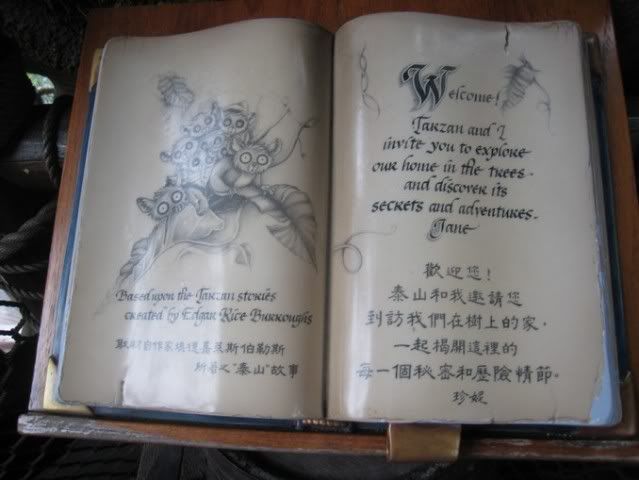 Based upon the Tarzan stories
created by Edgar Rice Burroughs
取材自作家埃德嘉萊斯伯勒斯
所著之“泰山”故事
Welcome!
Tarzan and I
invite you to explore
our home in the trees
and discover its
secrets and adventures.
Jane
歡迎您!
泰山和我邀請您
到訪我們在樹上的家,
一起揭開這裡的
每一個秘密和歷險情節。
珍妮